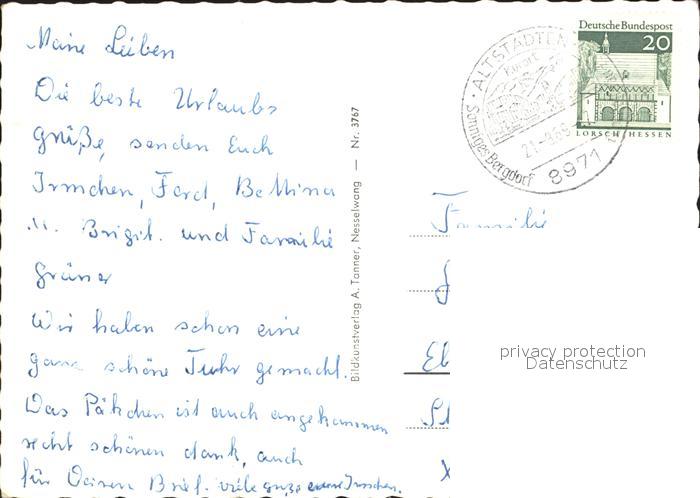 Meine Lieben
Die beste Urlaubs
grüße, senden Euch
Irmchen, Ferd, Bettina
u. Brigit. und Familie
Grüner
Wir haben schon eine
ganz schöne Tuhr gemacht.
Das Päkchen ist auch angekommen
recht schönen dank, auch
für Deinen Brief. viele grüße euere Irmchen.
Bildkunstverlag A. Tanner, Nesselwang — Nr. 3767
ALTSTÄDTEN
Kurort
21.-9.69
Sonniges Bergdorf
8971
Deutsche Bundespost
20
LORSCH/HESSEN
Familie
privacy protection
Datenschutz